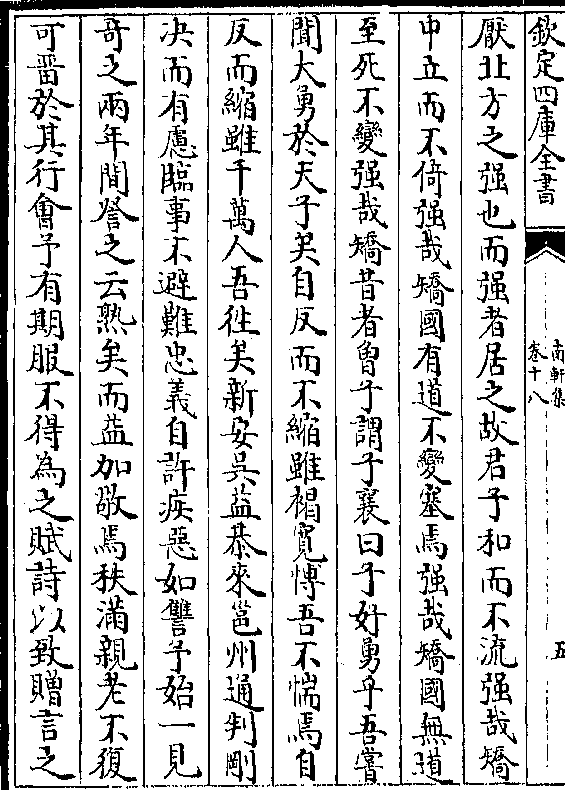 欽定四庫全書
南軒集
卷十八
五
厭北方之强也而强者居之故君子和而不流强哉矯
中立而不倚强哉矯國有道不變塞焉强哉矯國無道
至死不變强哉矯昔者曾子謂子襄曰子好勇乎吾嘗
聞大勇於夫子矣自反而不縮雖褐寛愽吾不惴焉自
反而縮雖千萬人吾徃矣新安吳益恭來邕州通判剛
决而有慮臨事不避難忠義自許疾惡如讐予始一見
竒之兩年間詧之云熟矣而益加敬焉秩滿親老不復
可畱於其行會予有期服不得為之賦詩以致贈言之